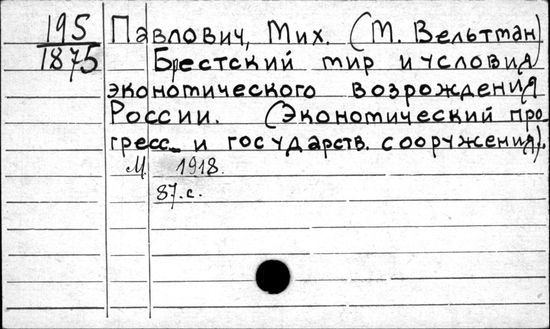 195
1875
Павлович, Мих. (М. Вельтман)
Брестский мир и условия
экономического возрождения
России. (Экономический про-
гресс и государств. сооружения).
М. 1918.
87. с.